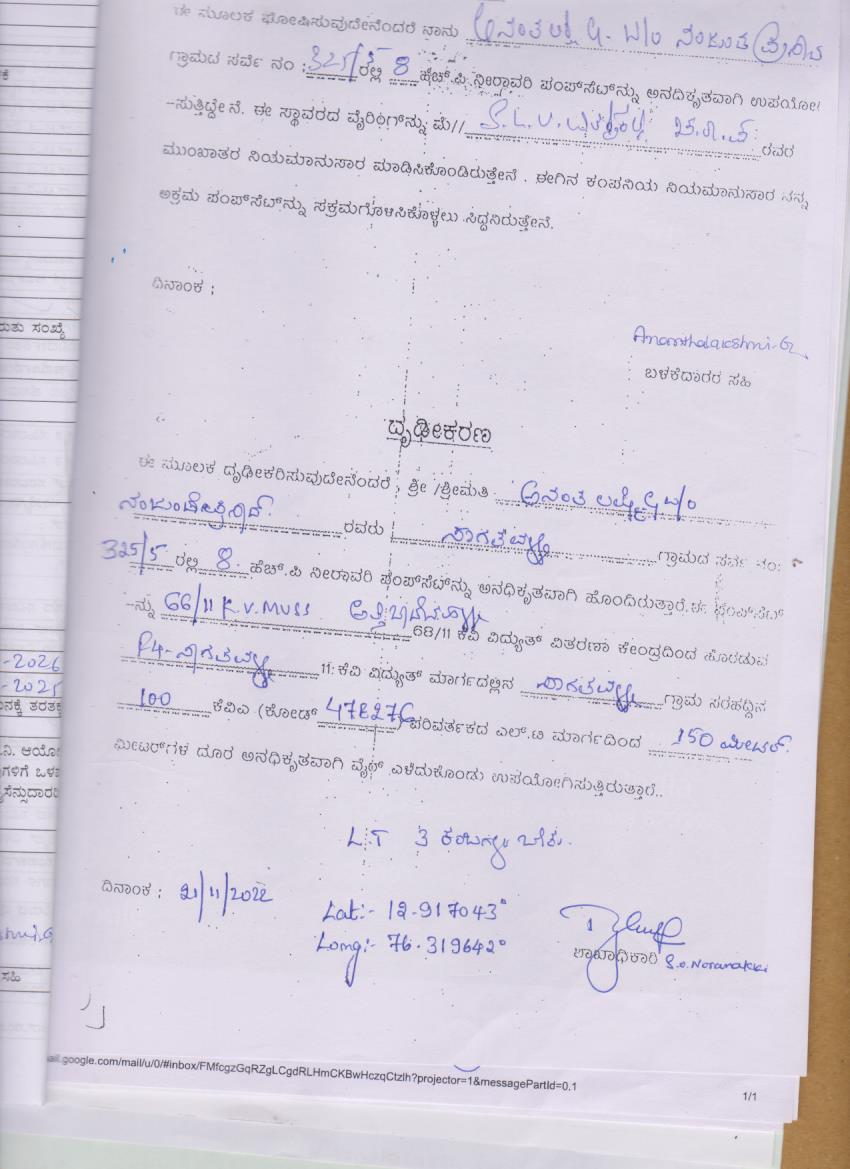 ಈ ಮೂಲಕ ಘೋಷಿಸುವುದೇನೆಂದರೆ ನಾನು ಅನಂತಲಕ್ಷ್ಮಿ G. W/o
ಗ್ರಾಮದ ಸರ್ವೆ ನಂ : 325/5 ರಲ್ಲಿ 8 ಹೆಚ್.ಪಿ ನೀರಾವರಿ ಪಂಪ್‌ಸೆಟ್‌ನ್ನು ಅನದಿಕೃತವಾಗಿ ಉಪಯೋ
-ಸುತ್ತಿದ್ದೇನೆ. ಈ ಸ್ಥಾವರದ ವೈರಿಂಗ್‌ನ್ನು ಮೆ// S.L.V. ರವರ
ಮುಂಖಾತರ ನಿಯಮಾನುಸಾರ ಮಾಡಿಸಿಕೊಂಡಿರುತ್ತೇನೆ . ಈಗಿನ ಕಂಪನಿಯ ನಿಯಮಾನುಸಾರ ನನ್ನ
ಅಕ್ರಮ ಪಂಪ್‌ಸೆಟ್‌ನ್ನು ಸಕ್ರಮಗೊಳಿಸಿಕೊಳ್ಳಲು ಸಿದ್ದನಿರುತ್ತೇನೆ.
ದಿನಾಂಕ ;
Ananthalakshmi-G
ಬಳಕೆದಾರರ ಸಹಿ
ದೃಢೀಕರಣ
ಈ ಮೂಲಕ ದೃಢೀಕರಿಸುವುದೇನೆಂದರೆ , ಶ್ರೀ /ಶ್ರೀಮತಿ ಅನಂತ ಲಕ್ಷ್ಮಿ G W/o
ರವರು ನಾಗತಿಹಳ್ಳಿ ಗ್ರಾಮದ ಸರ್ವೆ ನಂ:
325/5 ರಲ್ಲಿ 8. ಹೆಚ್.ಪಿ ನೀರಾವರಿ ಪಂಪ್‌ಸೆಟ್‌ನ್ನು ಅನಧಿಕೃತವಾಗಿ ಹೊಂದಿರುತ್ತಾರೆ. ಈ ಪಂಪ್‌ಸೆಟ್
-ನ್ನು 66/11 K.V. MUSS 68/11 ಕೆವಿ ವಿದ್ಯುತ್ ವಿತರಣಾ ಕೇಂದ್ರದಿಂದ ಹೊರಡುವ
F4-ನಾಗತಿಹಳ್ಳಿ 11 ಕೆವಿ ವಿದ್ಯುತ್ ಮಾರ್ಗದಲ್ಲಿನ ನಾಗತಿಹಳ್ಳಿ ಗ್ರಾಮ ಸರಹದ್ದಿನ
100 ಕೆವಿಎ (ಕೋಡ್ 478276 ) ಪರಿವರ್ತಕದ ಎಲ್.ಟಿ ಮಾರ್ಗದಿಂದ 150 ಮೀಟರ್.
ಮೀಟರ್‌ಗಳ ದೂರ ಅನಧಿಕೃತವಾಗಿ ವೈರ್ ಎಳೆದುಕೊಂಡು ಉಪಯೋಗಿಸುತ್ತಿರುತ್ತಾರೆ..
LT 3 ಕಂಬಗಳು ಬೇಕು.
ದಿನಾಂಕ : 21/11/2022
Lat:- 12.917043°
Long:- 76.319642°
ಶಾಖಾಧಿಕಾರಿ S.O. Noranakki
ail.google.com/mail/u/0/#inbox/FMfcgzGqRZgLCgdRLHmCKBwHczqCtzlh?projector=1&messagePartId=0.1
1/1
ಋತು ಸಂಖ್ಯೆ
-2026
-2025
ಸಹಿ